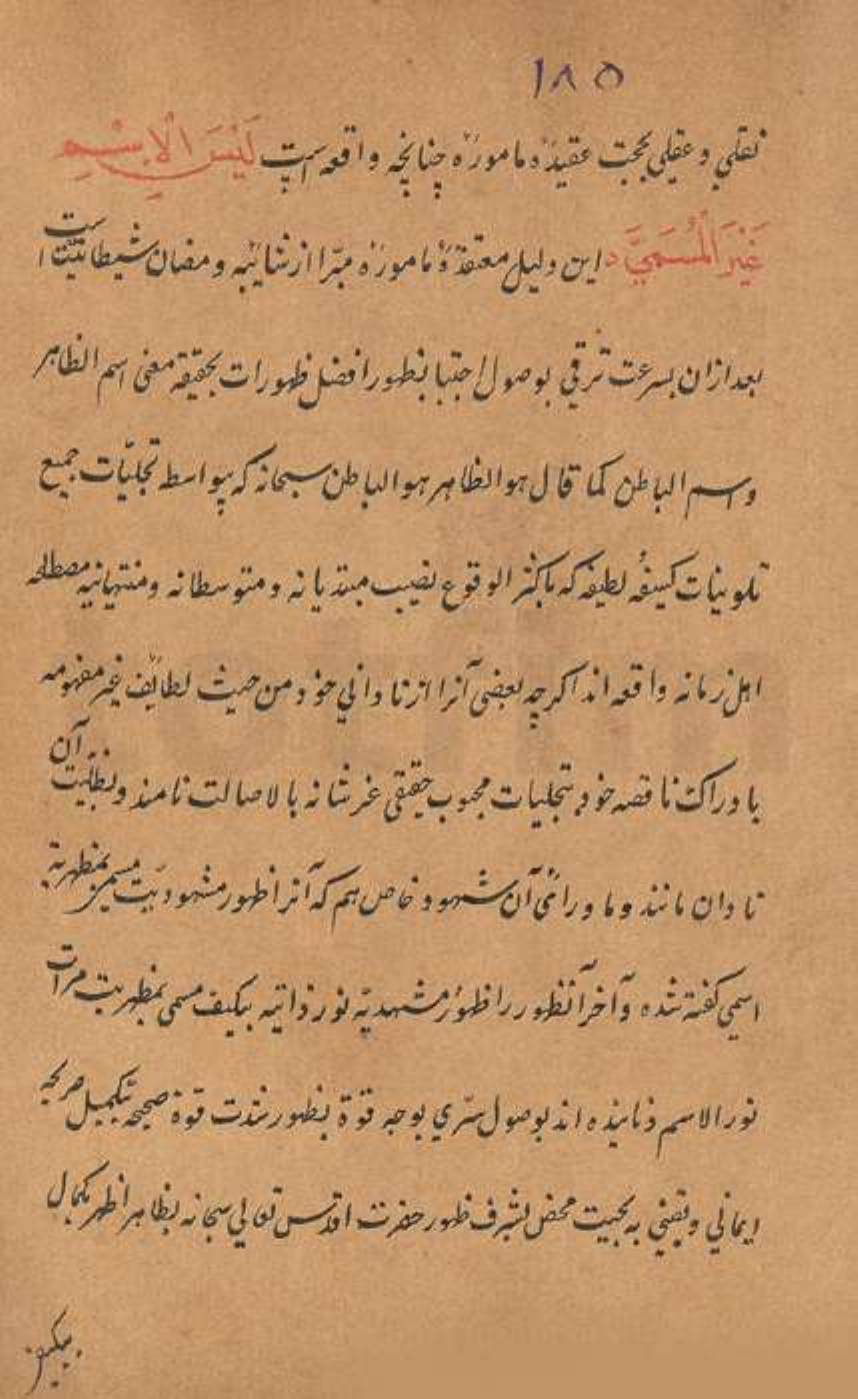 ۱۸۵
نقلي و عقلي بحجت عقيدهٔ مامورهٔ چنانچه واقعه است لَيْسَ الْاِسْمِ
غَيْرَ الْمُسَمّيَ د اين دليل معتقدهٔ مامورهٔ مبرّا از شائبه و مضان شيطانيت است
بعد ازان بسرعت ترقي بوصول اجتبا بظهور افضل ظهورات بحقيقة معني اسم الظاهر
و اسم الباطن كما قال هو الظاهر هو الباطن سبحانه كه بواسطه تجليّات جميع
تلوينات كسيفهٔ لطيفه كه باكثر الوقوع نصيب مبتديانه و متوسطانه و منتهيانيه مصطلحه
اهل زمانه واقعه اند اگرچه بعضي آنرا از ناداني خود من حيث لطائف غير مفهومه
با دراكت ناقصه خود تجليات محبوب حقيقي عز شانه بالاصالت نامند و بظليت آن
نادان مانند و ما ورائي آن شهود خاص هم كه آنرا ظهور مشهوديّت مسمي بمظهرية
اسمي گفته شده و آخر آنظهور را ظهور مشهديّه نور ذاتيه بيكيف مسمي بمظهريت مرات
نور الاسم فرمانيده اند بوصول سرّي بوجه قوة بظهور شدت قوة صحيحه تكميل صريحه
ايماني و يقيني به بحيت محض بشرف ظهور حضرت اقدس تعالي سبحانه بظاهر اظهر بكمال
بيكيف